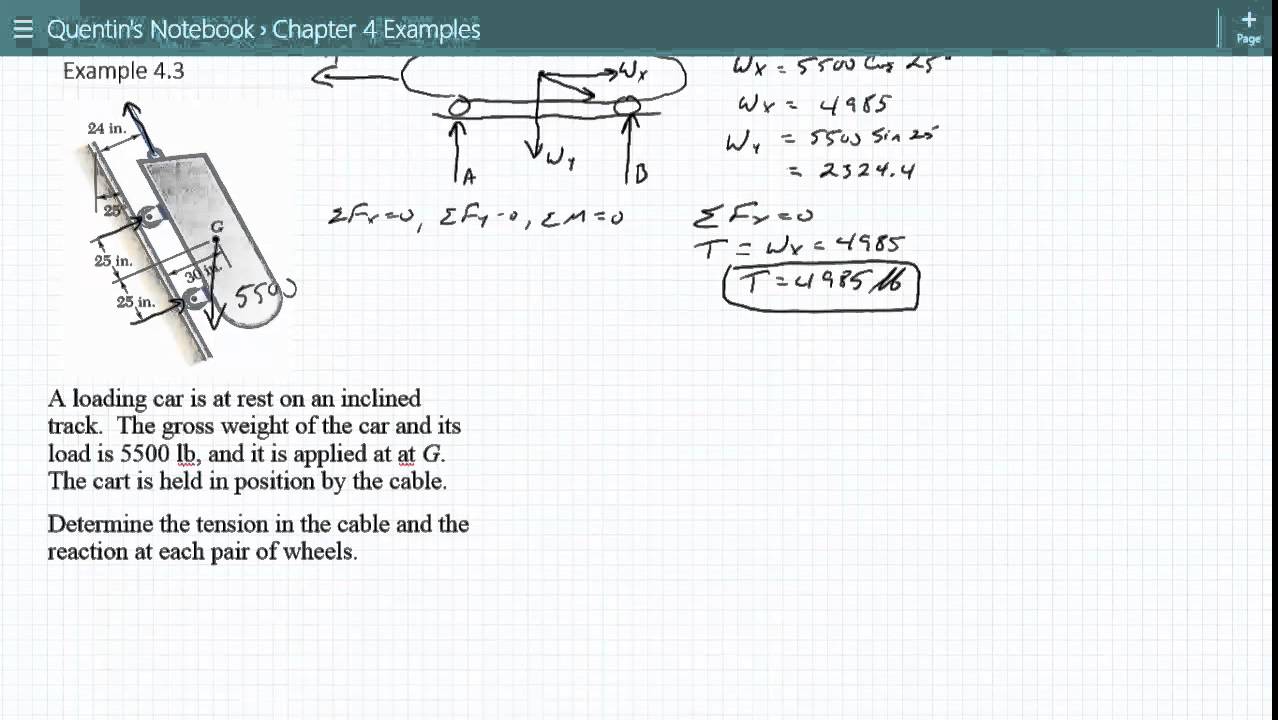 Quentin's Notebook › Chapter 4 Examples
Page
Example 4.3
24 in.
25°
25 in.
25 in.
G
30 in.
5500
Wx
Wy
A
B
ΣFx=0, ΣFy=0, ΣM=0
Wx = 5500 Cos 25°
Wx = 4985
Wy = 5500 Sin 25°
= 2324.4
ΣFx=0
T = Wx = 4985
T = 4985 lb
A loading car is at rest on an inclined
track. The gross weight of the car and its
load is 5500 lb, and it is applied at at G.
The cart is held in position by the cable.
Determine the tension in the cable and the
reaction at each pair of wheels.